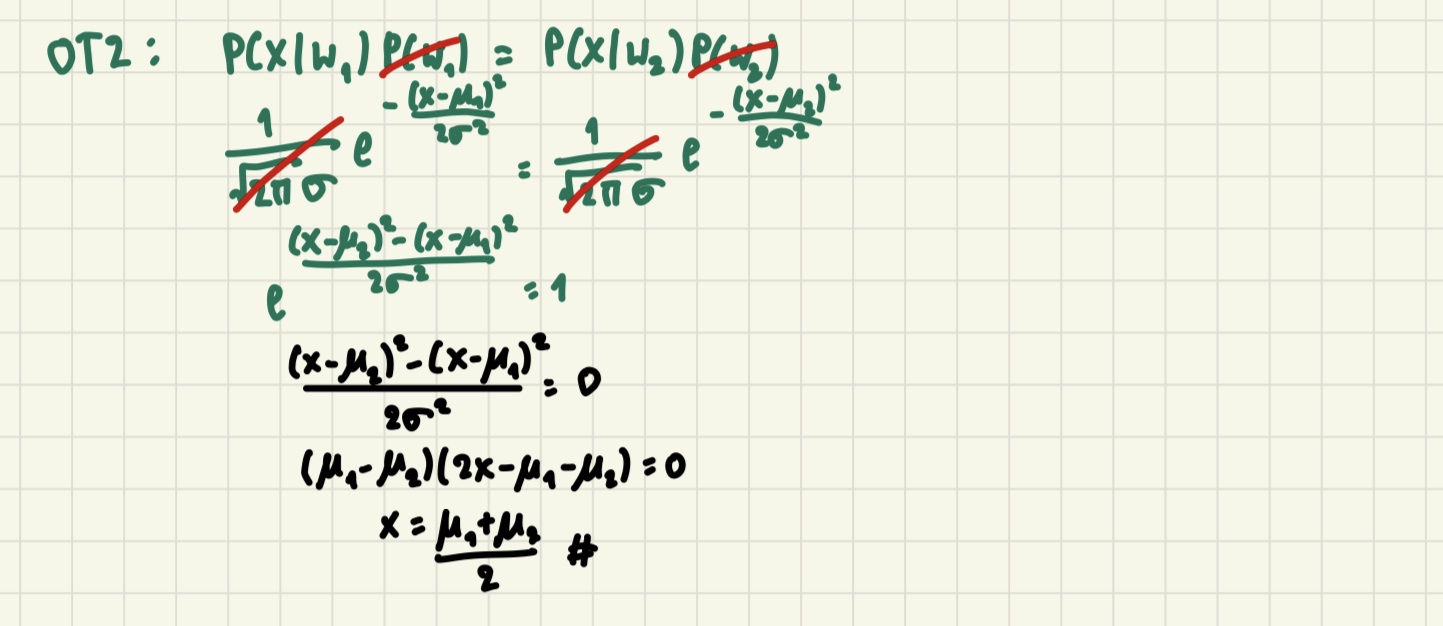 OT2: P(X|W₁)P(W₁) = P(X|W₂)P(W₂)
1/(√2π σ) e^(-(x-μ₁)²/2σ²) = 1/(√2π σ) e^(-(x-μ₂)²/2σ²)
e^(((x-μ₂)²-(x-μ₁)²)/2σ²) = 1
((x-μ₂)²-(x-μ₁)²)/2σ² = 0
(μ₁-μ₂)(2x-μ₁-μ₂) = 0
x = (μ₁+μ₂)/2 #